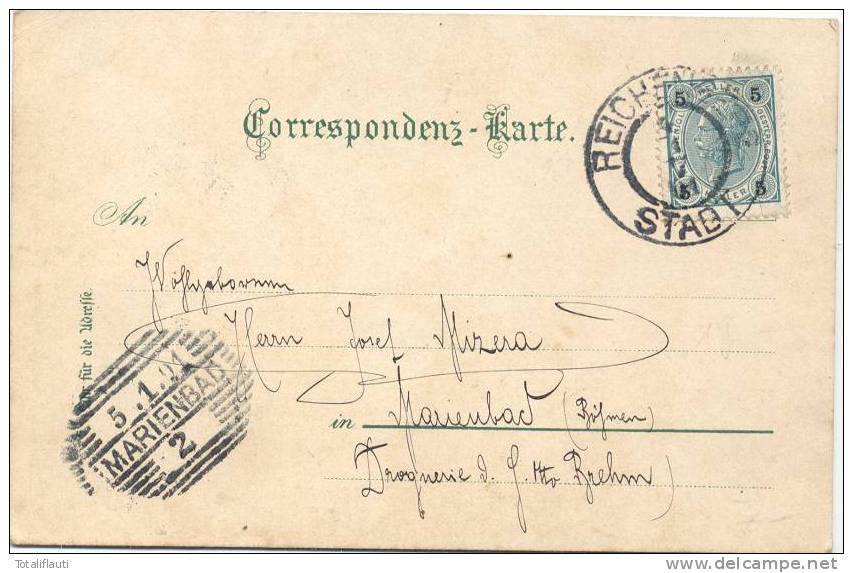 Correspondenz-Karte.
REICHEN
STADT
5 HELLER 5
5 HELLER 5
An
Wohlgeboren
Herrn Josef Mizera
in Marienbad (Böhmen)
Droguerie d. G. Otto Brehm
für die Adresse.
5.1.01
MARIENBAD
2
Totaliflauti
www.delcampe.net